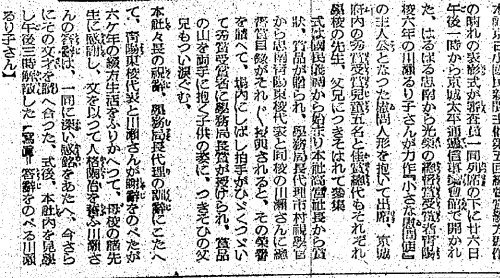 の晴れの表彰式が審査員一同列席の下に廿六日
午後一時から京城太平通遞信事業會館で開かれ
た、はるばる忠南から光榮の總督賞受賞者青陽
校六年の川瀬るり子さんが力作『小さな慰問使』
の主人公となつた慰問人形を抱いて出席、京城
府内の秀賞受賞兒童五名と佳賞總代もそれぞれ
學校の先生、父兄につきそはれて參集
式は國民儀禮から始まり本社高宮社長から賞
狀、賞品が贈られ、學務局長代理市村視學官
から忠南青陽東校代表と同校の川瀬さんに總
督賞目錄がそれ〲授與されると、その榮譽
を讃へて、場内にしばし拍手がひびく、つゞい
て秀賞受賞者に學務局長賞が授けられ、賞品
の山を兩手に抱く子供の姿に、つきそひの父
兄もつい淚ぐむ。
本社々長の祝辭、學務局長代理の訓辭にこたへ
て、青陽東校代表と川瀬さんが謝辭をのべたが
六ケ年の綴方生活をふりかへつて、母校の諸先
生に感謝し、文を以つて人格陶冶を誓ふ川瀬さ
んの答辭は、一同に深い感銘をあたへ、今さら
にその文才を讃へ合つた、式後、本社内を見學
し午後三時解散した【寫眞＝答辭をのべる川瀬
るり子さん】